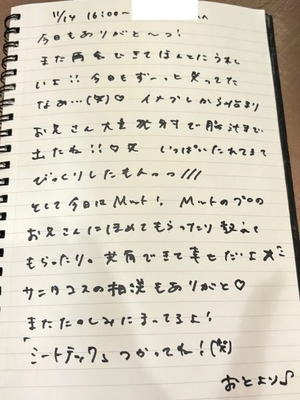 11/14 16:00〜
今日もありがと〜っ!
また再会できてほんとにうれし
いよ!! 今日もず〜っと笑ってた
なぁ…(笑)♡ イメプレから始まり
お兄さん大量発射で脳汁まで
出たね!!♡笑 いっぱいたれてきて
びっくりしたもんっっ///
そして今日はMット! Mットのプロの
お兄さんにほめてもらったり教えて
もらったり。共有できて幸せだよ
サンタコスの相談もありがと♡
またたのしみにまってるよ!
「ミートテック」つかってね!(笑)
おとより♪